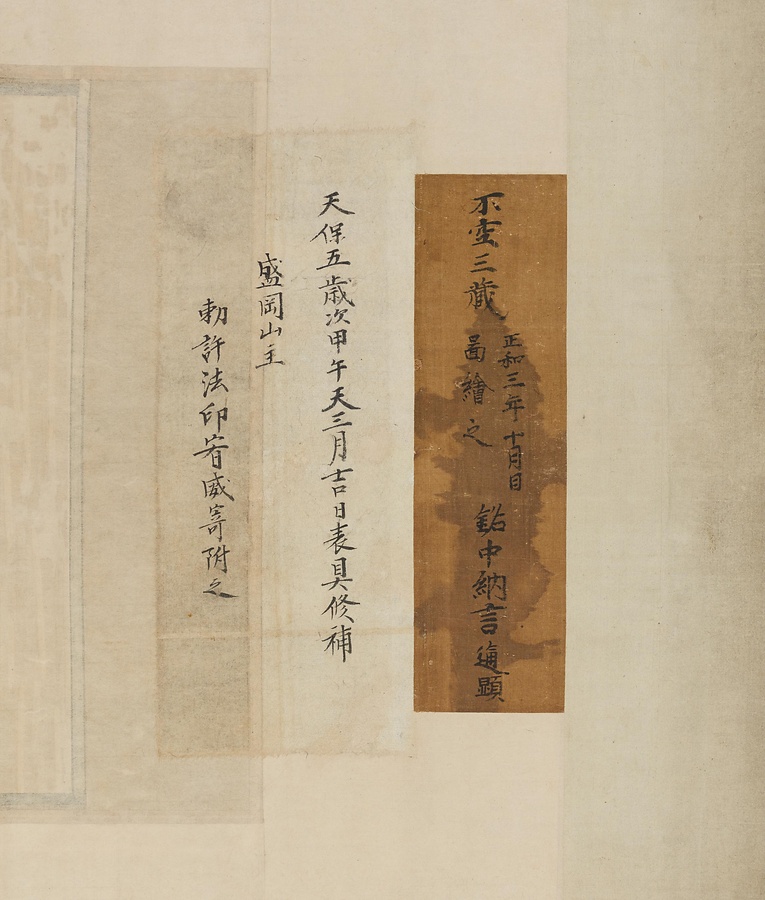 不空三蔵
正和三年十月日
啚繪之
中納言通顯
天保五歳次甲午天三月吉日表具修補
盛岡山主
勅許法印宥威寄附之